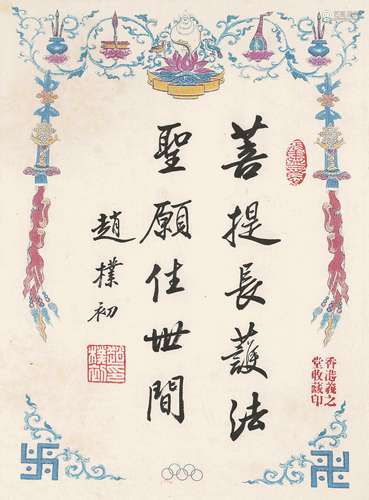 菩提長護法
聖願住世間
趙樸初
香港義之
堂收藏印